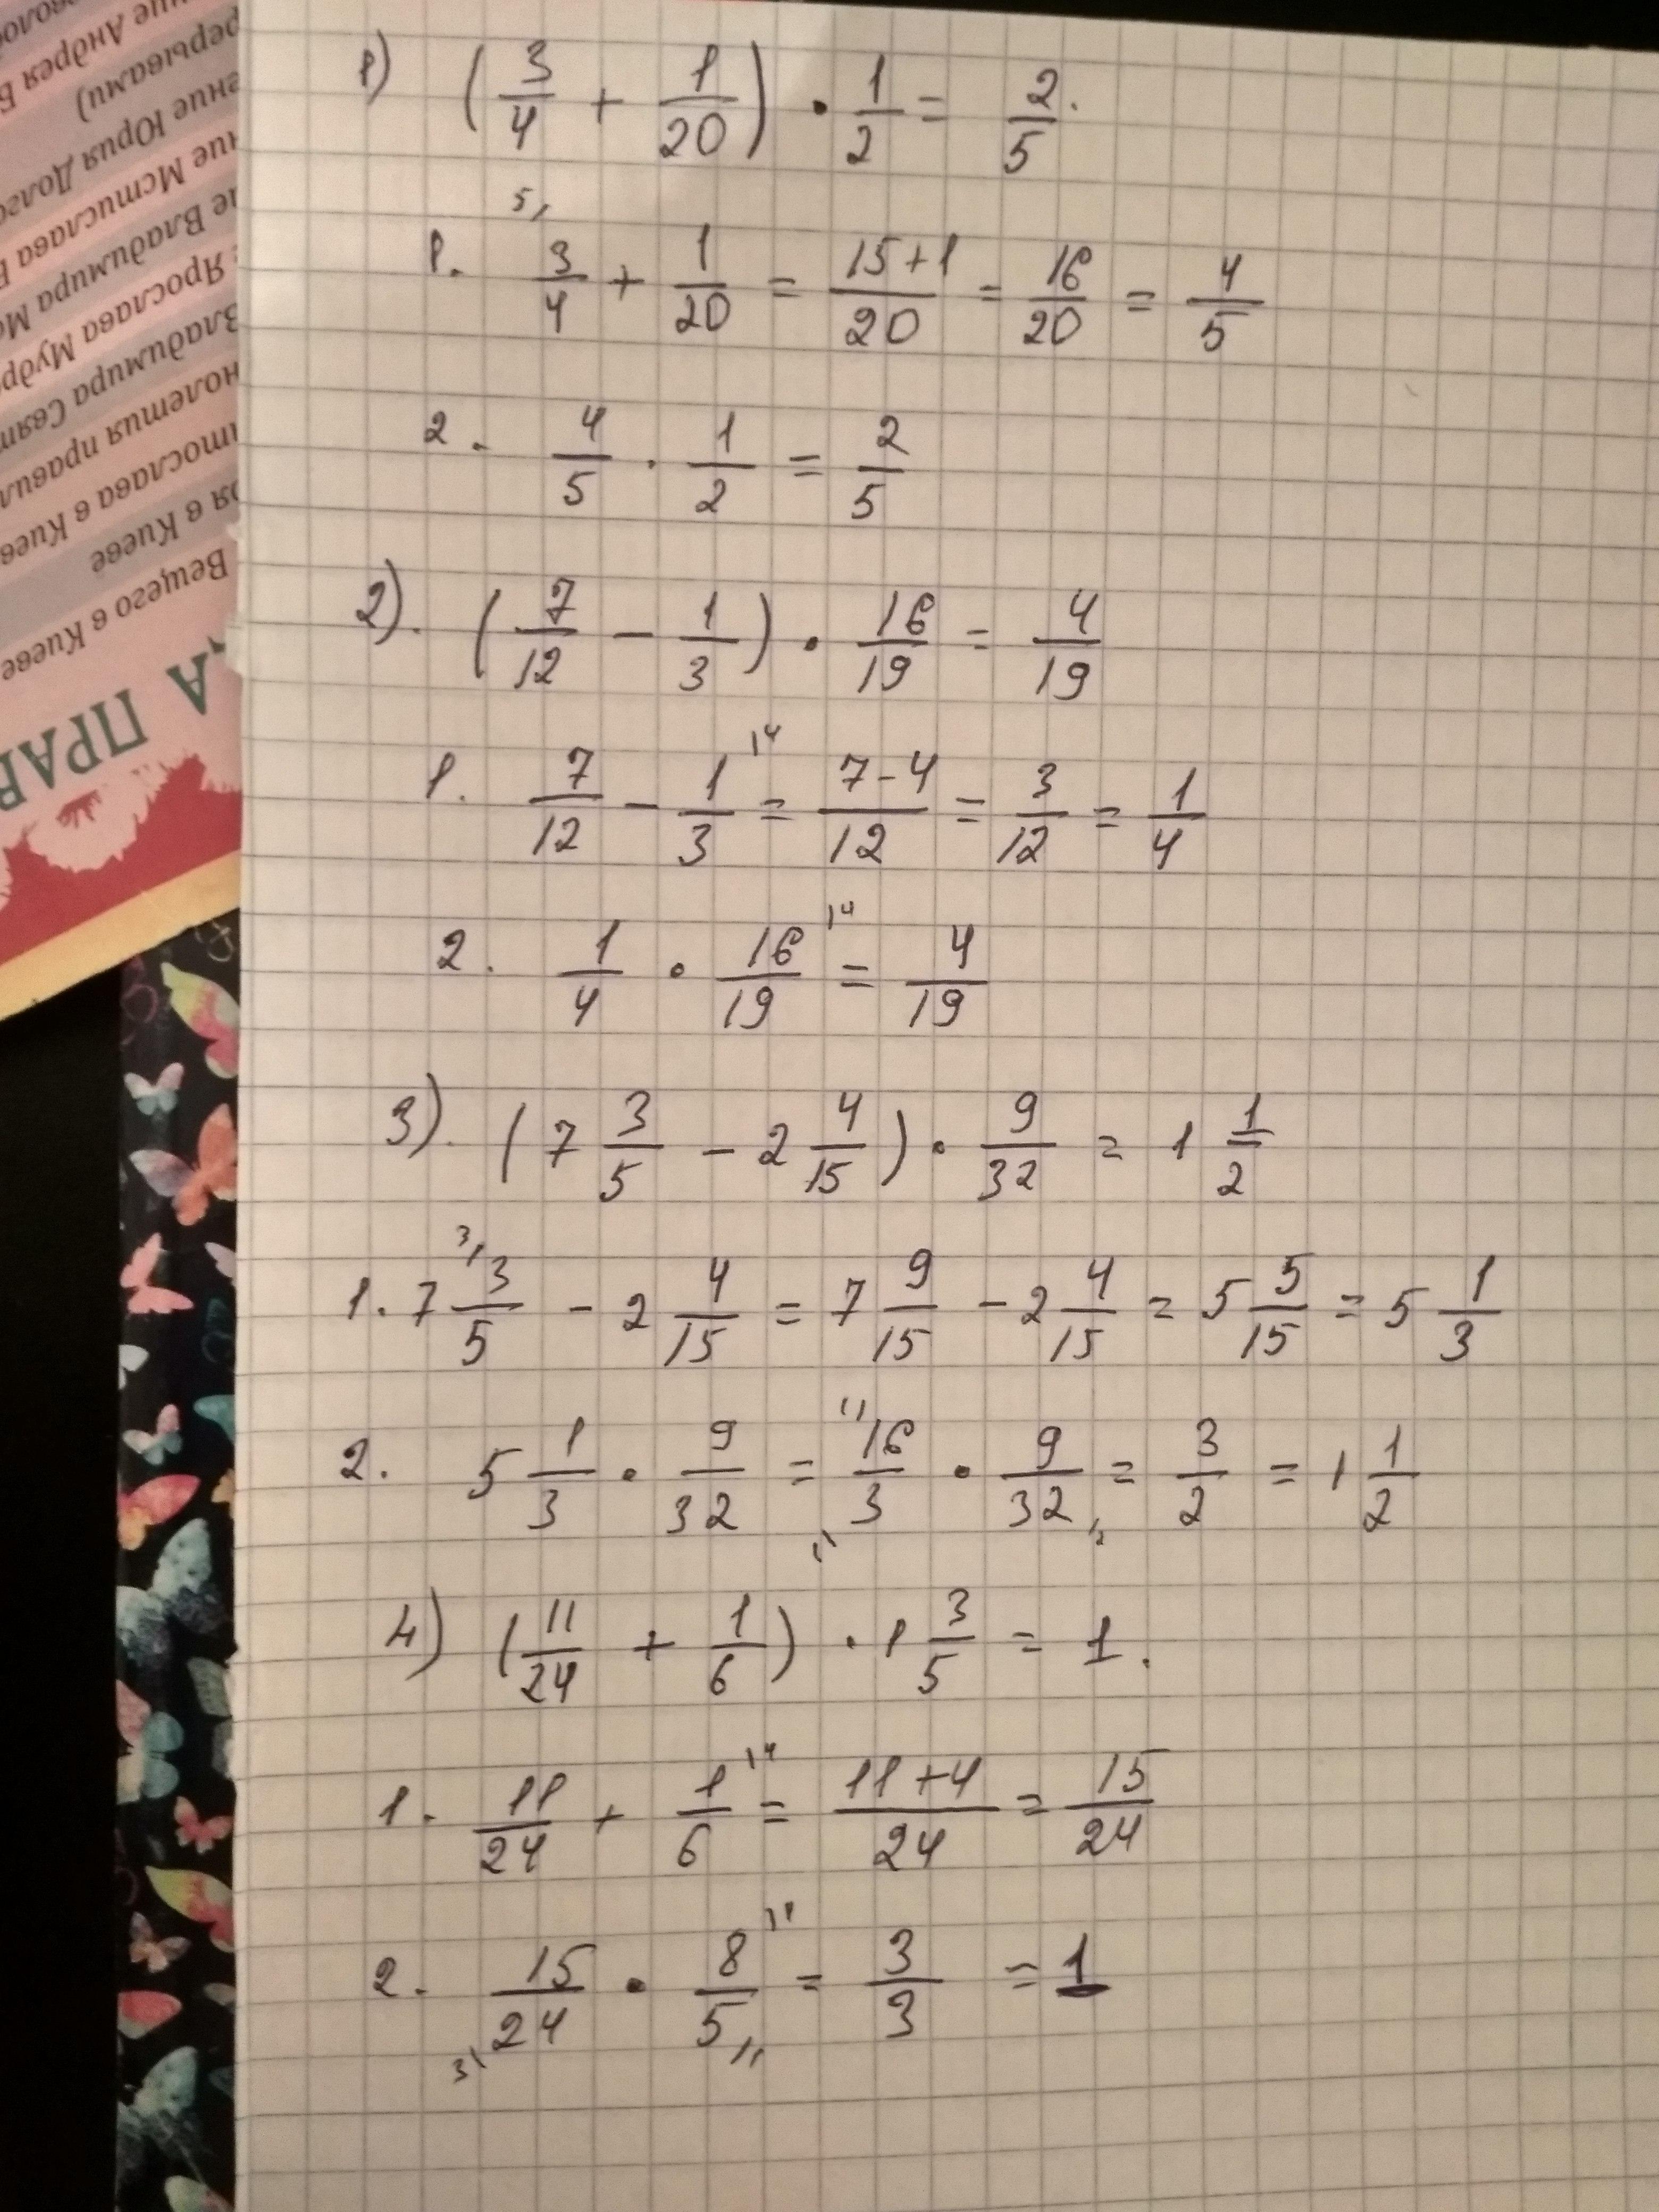 1) (3/4 + 1/20) · 1/2 = 2/5.
5/
1. 3/4 + 1/20 = 15+1/20 = 16/20 = 4/5
2. 4/5 · 1/2 = 2/5
2). (7/12 - 1/3) · 16/19 = 4/19
1. 7/12 - 1/3 \4 = 7-4/12 = 3/12 = 1/4
2. 1/4 · 16/19 \4 = 4/19
3). (7 3/5 - 2 4/15) · 9/32 = 1 1/2
3/
1. 7 3/5 - 2 4/15 = 7 9/15 - 2 4/15 = 5 5/15 = 5 1/3
2. 5 1/3 · 9/32 = 16/3 · 9/32 = 3/2 = 1 1/2
4) (11/24 + 1/6) · 1 3/5 = 1.
1. 11/24 + 1/6 \4 = 11+4/24 = 15/24
2. 15/24 · 8/5 = 3/3 = 1
Вещего в Киеве
я в Киеве
тослава в Киев
нолетия правил
Владимира Свят
Ярослава Мудр
е Владимира М
ие Мстислава
ение Юрия Долг
рерывами)
ние Андрея Б
А ПРАВ